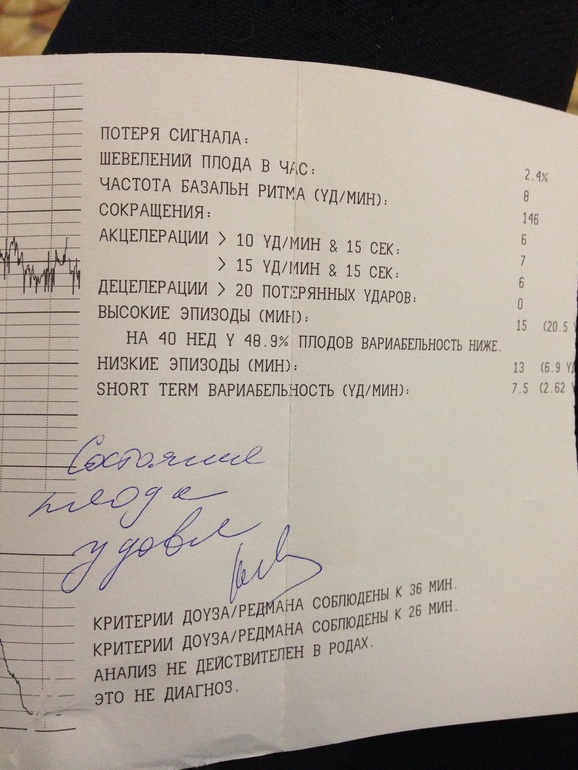 ПОТЕРЯ СИГНАЛА: 2.4%
ШЕВЕЛЕНИЙ ПЛОДА В ЧАС: 8
ЧАСТОТА БАЗАЛЬН РИТМА (УД/МИН): 146
СОКРАЩЕНИЯ: 6
АКЦЕЛЕРАЦИИ > 10 УД/МИН & 15 СЕК: 7
> 15 УД/МИН & 15 СЕК: 6
ДЕЦЕЛЕРАЦИИ > 20 ПОТЕРЯННЫХ УДАРОВ: 0
ВЫСОКИЕ ЭПИЗОДЫ (МИН): 15 (20.5 У
НА 40 НЕД У 48.9% ПЛОДОВ ВАРИАБЕЛЬНОСТЬ НИЖЕ.
НИЗКИЕ ЭПИЗОДЫ (МИН): 13 (6.9 У
SHORT TERM ВАРИАБЕЛЬНОСТЬ (УД/МИН): 7.5 (2.62
Состояние
плода
удовл
КРИТЕРИИ ДОУЗА/РЕДМАНА СОБЛЮДЕНЫ К 36 МИН.
КРИТЕРИИ ДОУЗА/РЕДМАНА СОБЛЮДЕНЫ К 26 МИН.
АНАЛИЗ НЕ ДЕЙСТВИТЕЛЕН В РОДАХ.
ЭТО НЕ ДИАГНОЗ.